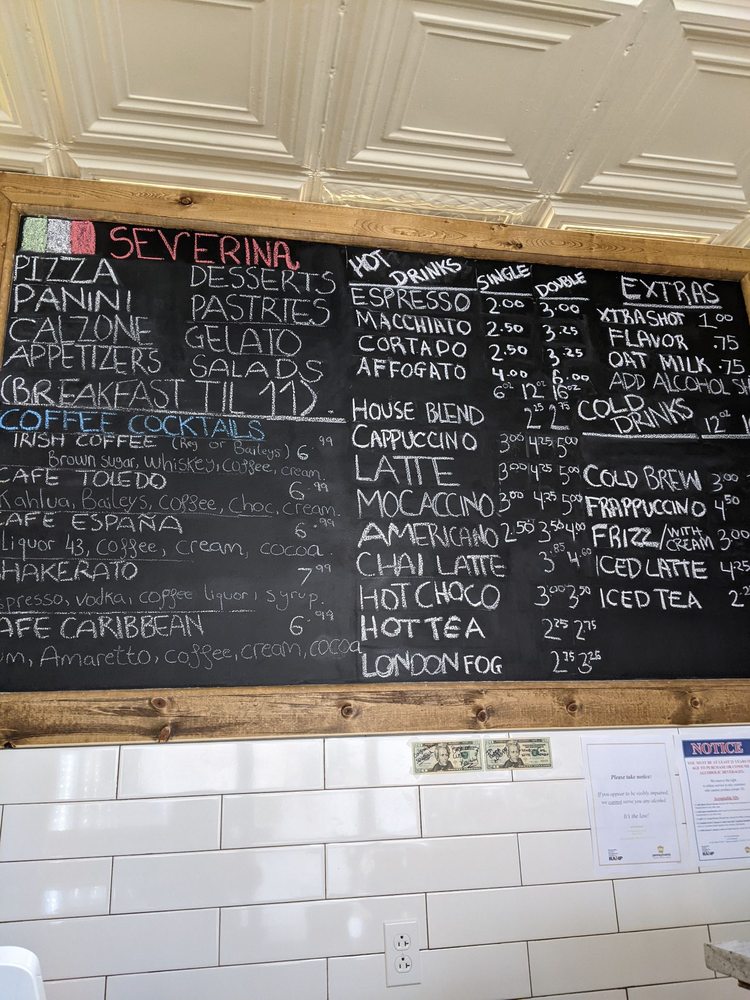 SEVERINA
PIZZA
PANINI
CALZONE
APPETIZERS
DESSERTS
PASTRIES
GELATO
SALADS
(BREAKFAST TIL 11)
COFFEE COCKTAILS
IRISH COFFEE (Reg or Baileys) 6.99
Brown sugar, whiskey, coffee, cream
CAFE TOLEDO 6.99
Kahlua, Baileys, coffee, choc, cream
CAFE ESPAÑA 6.99
Liquor 43, coffee, cream, cocoa
HAKERATO 7.99
spresso, vodka, coffee liquor, syrup.
AFE CARIBBEAN 6.99
um, Amaretto, coffee, cream, cocoa
HOT DRINKS SINGLE DOUBLE
ESPRESSO 2.00 3.00
MACCHIATO 2.50 3.25
CORTADO 2.50 3.25
AFFOGATO 4.00 6.00
6oz 12oz 16oz
HOUSE BLEND 2.25 2.75
CAPPUCCINO 3.00 4.25 5.00
LATTE 3.00 4.25 5.00
MOCACCINO 3.00 4.25 5.00
AMERICANO 2.50 3.50 4.00
CHAI LATTE 3.85 4.60
HOT CHOCO 3.00 3.50
HOT TEA 2.25 2.75
LONDON FOG 2.75 3.25
EXTRAS
XTRA SHOT 1.00
FLAVOR .75
OAT MILK .75
ADD ALCOHOL
COLD DRINKS 12oz
COLD BREW 3.00
FRAPPUCCINO 4.50
FRIZZ/WITH CREAM 3.00
ICED LATTE 4.25
ICED TEA
Please take notice:
If you appear to be visibly impaired,
we cannot serve you any alcohol.
It's the law!
NOTICE